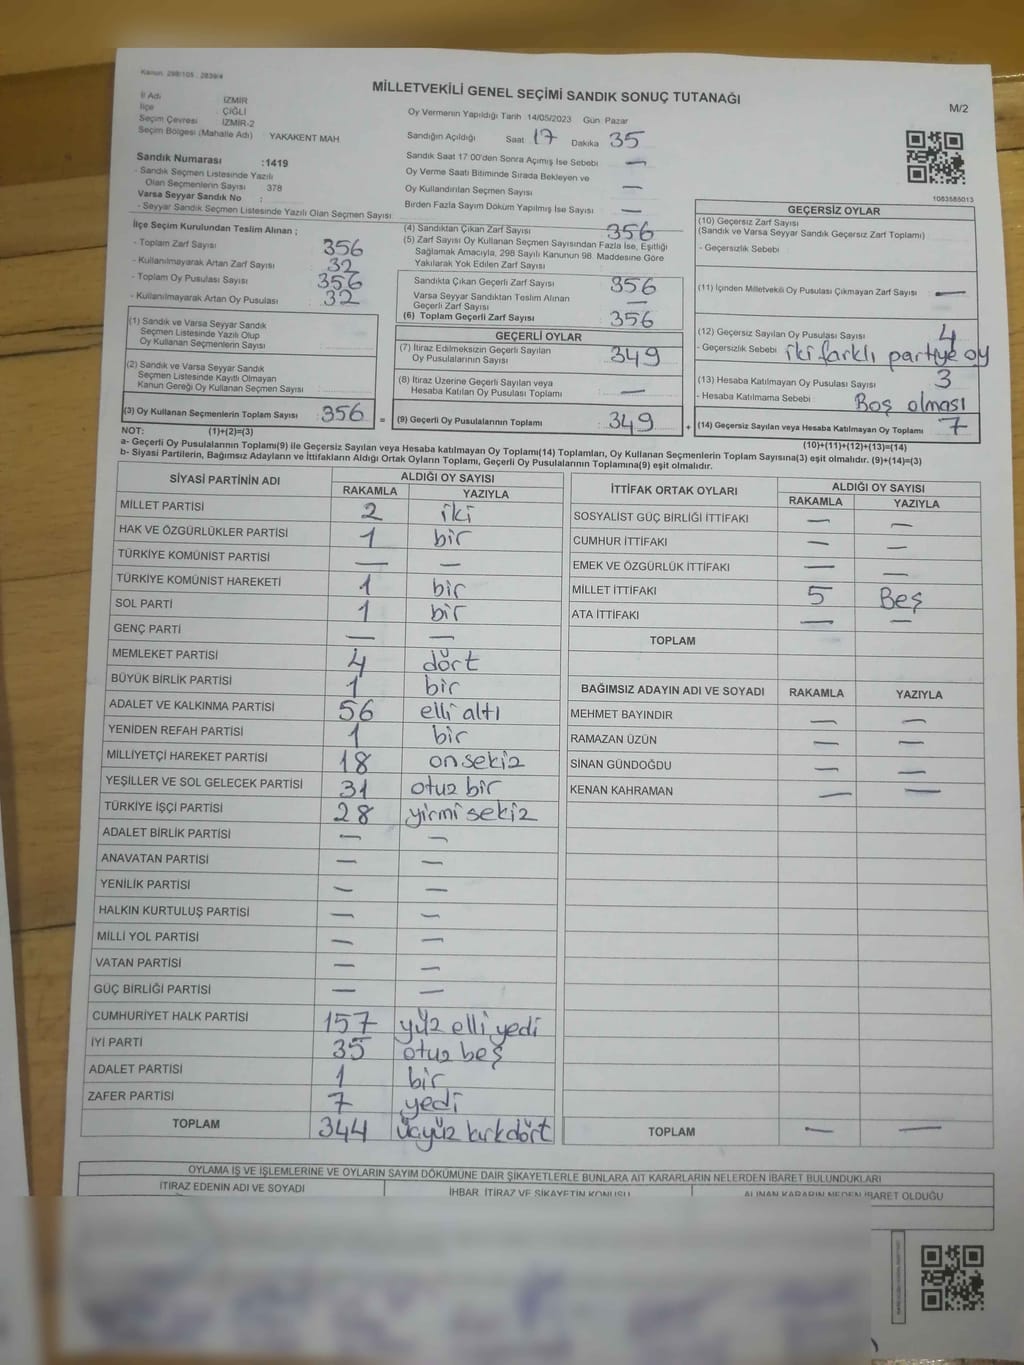 Kanun: 298/105 , 2839/4
MİLLETVEKİLİ GENEL SEÇİMİ SANDIK SONUÇ TUTANAĞI
M/2
İl Adı İZMİR
İlçe ÇİĞLİ
Seçim Çevresi İZMİR-2
Seçim Bölgesi (Mahalle Adı) YAKAKENT MAH
Sandık Numarası :1419
- Sandık Seçmen Listesinde Yazılı
Olan Seçmenlerin Sayısı 378
Varsa Seyyar Sandık No :
- Seyyar Sandık Seçmen Listesinde Yazılı Olan Seçmen Sayısı
Oy Vermenin Yapıldığı Tarih 14/05/2023 Gün Pazar
Sandığın Açıldığı Saat 17 Dakika 35
Sandık Saat 17:00'den Sonra Açılmış İse Sebebi —
Oy Verme Saati Bitiminde Sırada Bekleyen ve
Oy Kullandırılan Seçmen Sayısı —
Birden Fazla Sayım Döküm Yapılmış İse Sayısı —
1083585013
İlçe Seçim Kurulundan Teslim Alınan ;
- Toplam Zarf Sayısı 356
- Kullanılmayarak Artan Zarf Sayısı 32
- Toplam Oy Pusulası Sayısı 356
- Kullanılmayarak Artan Oy Pusulası 32
(1) Sandık ve Varsa Seyyar Sandık
Seçmen Listesinde Yazılı Olup
Oy Kullanan Seçmenlerin Sayısı
(2) Sandık ve Varsa Seyyar Sandık
Seçmen Listesinde Kayıtlı Olmayan
Kanun Gereği Oy Kullanan Seçmen Sayısı
(3) Oy Kullanan Seçmenlerin Toplam Sayısı : 356 =
(4) Sandıktan Çıkan Zarf Sayısı 356
(5) Zarf Sayısı Oy Kullanan Seçmen Sayısından Fazla İse, Eşitliği
Sağlamak Amacıyla, 298 Sayılı Kanunun 98. Maddesine Göre
Yakılarak Yok Edilen Zarf Sayısı
Sandıkta Çıkan Geçerli Zarf Sayısı 356
Varsa Seyyar Sandıktan Teslim Alınan
Geçerli Zarf Sayısı —
(6) Toplam Geçerli Zarf Sayısı 356
GEÇERLİ OYLAR
(7) İtiraz Edilmeksizin Geçerli Sayılan
Oy Pusulalarının Sayısı 349
(8) İtiraz Üzerine Geçerli Sayılan veya
Hesaba Katılan Oy Pusulası Toplamı —
(9) Geçerli Oy Pusulalarının Toplamı : 349 +
GEÇERSİZ OYLAR
(10) Geçersiz Zarf Sayısı
(Sandık ve Varsa Seyyar Sandık Geçersiz Zarf Toplamı)
- Geçersizlik Sebebi
(11) İçinden Milletvekili Oy Pusulası Çıkmayan Zarf Sayısı —
(12) Geçersiz Sayılan Oy Pusulası Sayısı 4
- Geçersizlik Sebebi iki farklı partiye oy
(13) Hesaba Katılmayan Oy Pusulası Sayısı 3
- Hesaba Katılmama Sebebi Boş olması
(14) Geçersiz Sayılan veya Hesaba Katılmayan Oy Toplamı 7
NOT: (1)+(2)=(3)
(10)+(11)+(12)+(13)=(14)
a- Geçerli Oy Pusulalarının Toplamı(9) ile Geçersiz Sayılan veya Hesaba katılmayan Oy Toplamı(14) Toplamları, Oy Kullanan Seçmenlerin Toplam Sayısına(3) eşit olmalıdır. (9)+(14)=(3)
b- Siyasi Partilerin, Bağımsız Adayların ve İttifakların Aldığı Ortak Oyların Toplamı, Geçerli Oy Pusulalarının Toplamına(9) eşit olmalıdır.
SİYASİ PARTİNİN ADI ALDIĞI OY SAYISI
RAKAMLA YAZIYLA
MİLLET PARTİSİ 2 iki
HAK VE ÖZGÜRLÜKLER PARTİSİ 1 bir
TÜRKİYE KOMÜNİST PARTİSİ — —
TÜRKİYE KOMÜNİST HAREKETİ 1 bir
SOL PARTİ 1 bir
GENÇ PARTİ — —
MEMLEKET PARTİSİ 4 dört
BÜYÜK BİRLİK PARTİSİ 1 bir
ADALET VE KALKINMA PARTİSİ 56 elli altı
YENİDEN REFAH PARTİSİ 1 bir
MİLLİYETÇİ HAREKET PARTİSİ 18 onsekiz
YEŞİLLER VE SOL GELECEK PARTİSİ 31 otuz bir
TÜRKİYE İŞÇİ PARTİSİ 28 yirmi sekiz
ADALET BİRLİK PARTİSİ — —
ANAVATAN PARTİSİ — —
YENİLİK PARTİSİ — —
HALKIN KURTULUŞ PARTİSİ — —
MİLLİ YOL PARTİSİ — —
VATAN PARTİSİ — —
GÜÇ BİRLİĞİ PARTİSİ — —
CUMHURİYET HALK PARTİSİ 157 yüz elli yedi
İYİ PARTİ 35 otuz beş
ADALET PARTİSİ 1 bir
ZAFER PARTİSİ 7 yedi
TOPLAM 344 üçyüz kırkdört
İTTİFAK ORTAK OYLARI ALDIĞI OY SAYISI
RAKAMLA YAZIYLA
SOSYALİST GÜÇ BİRLİĞİ İTTİFAKI — —
CUMHUR İTTİFAKI — —
EMEK VE ÖZGÜRLÜK İTTİFAKI — —
MİLLET İTTİFAKI 5 Beş
ATA İTTİFAKI — —
TOPLAM
BAĞIMSIZ ADAYIN ADI VE SOYADI RAKAMLA YAZIYLA
MEHMET BAYINDIR — —
RAMAZAN ÜZÜN — —
SİNAN GÜNDOĞDU — —
KENAN KAHRAMAN — —
TOPLAM — —
OYLAMA İŞ VE İŞLEMLERİNE VE OYLARIN SAYIM DÖKÜMÜNE DAİR ŞİKAYETLERLE BUNLARA AİT KARARLARIN NELERDEN İBARET BULUNDUKLARI
İTİRAZ EDENİN ADI VE SOYADI İHBAR, İTİRAZ VE ŞİKAYETİN KONUSU ALINAN KARARIN NEDEN İBARET OLDUĞU